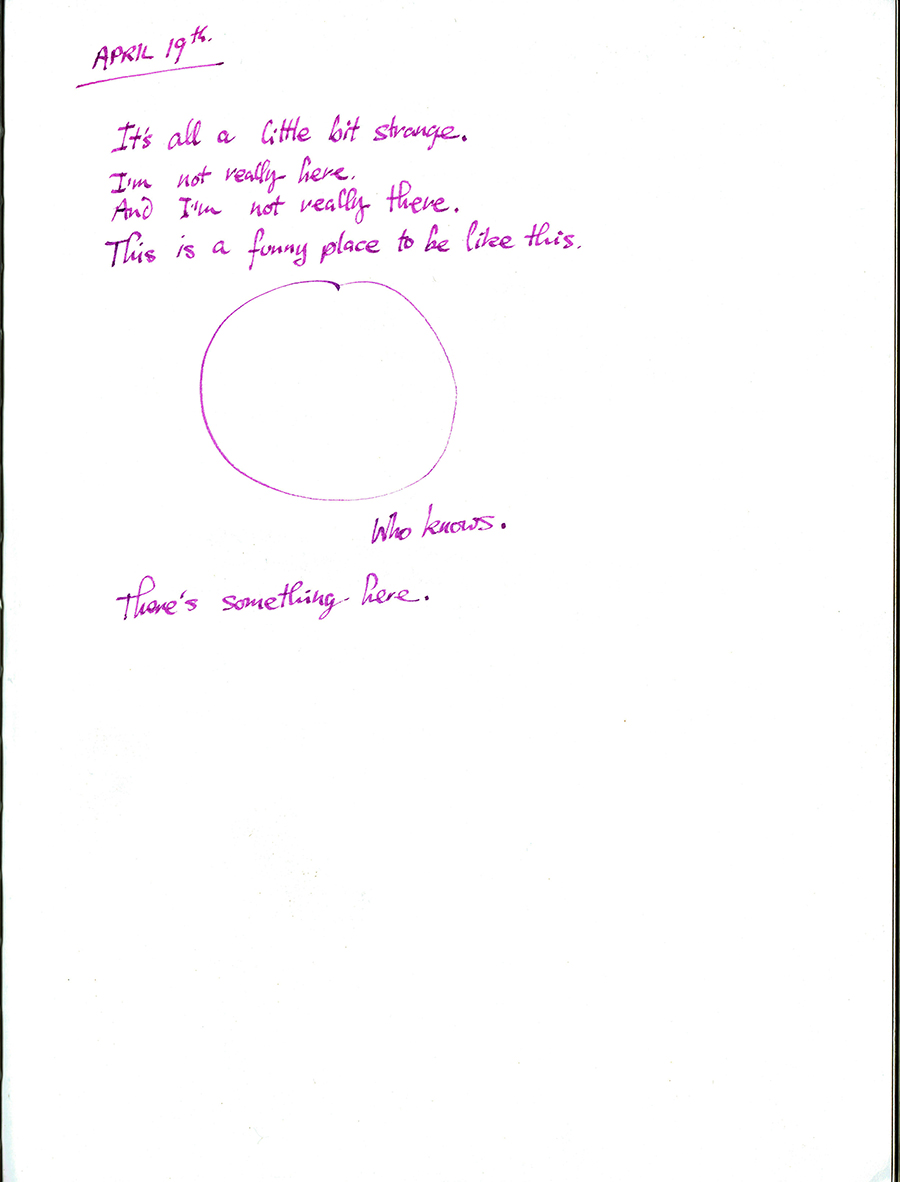 APRIL 19th.
It's all a little bit strange.
I'm not really here.
And I'm not really there.
This is a funny place to be like this.
Who knows.
There's something here.